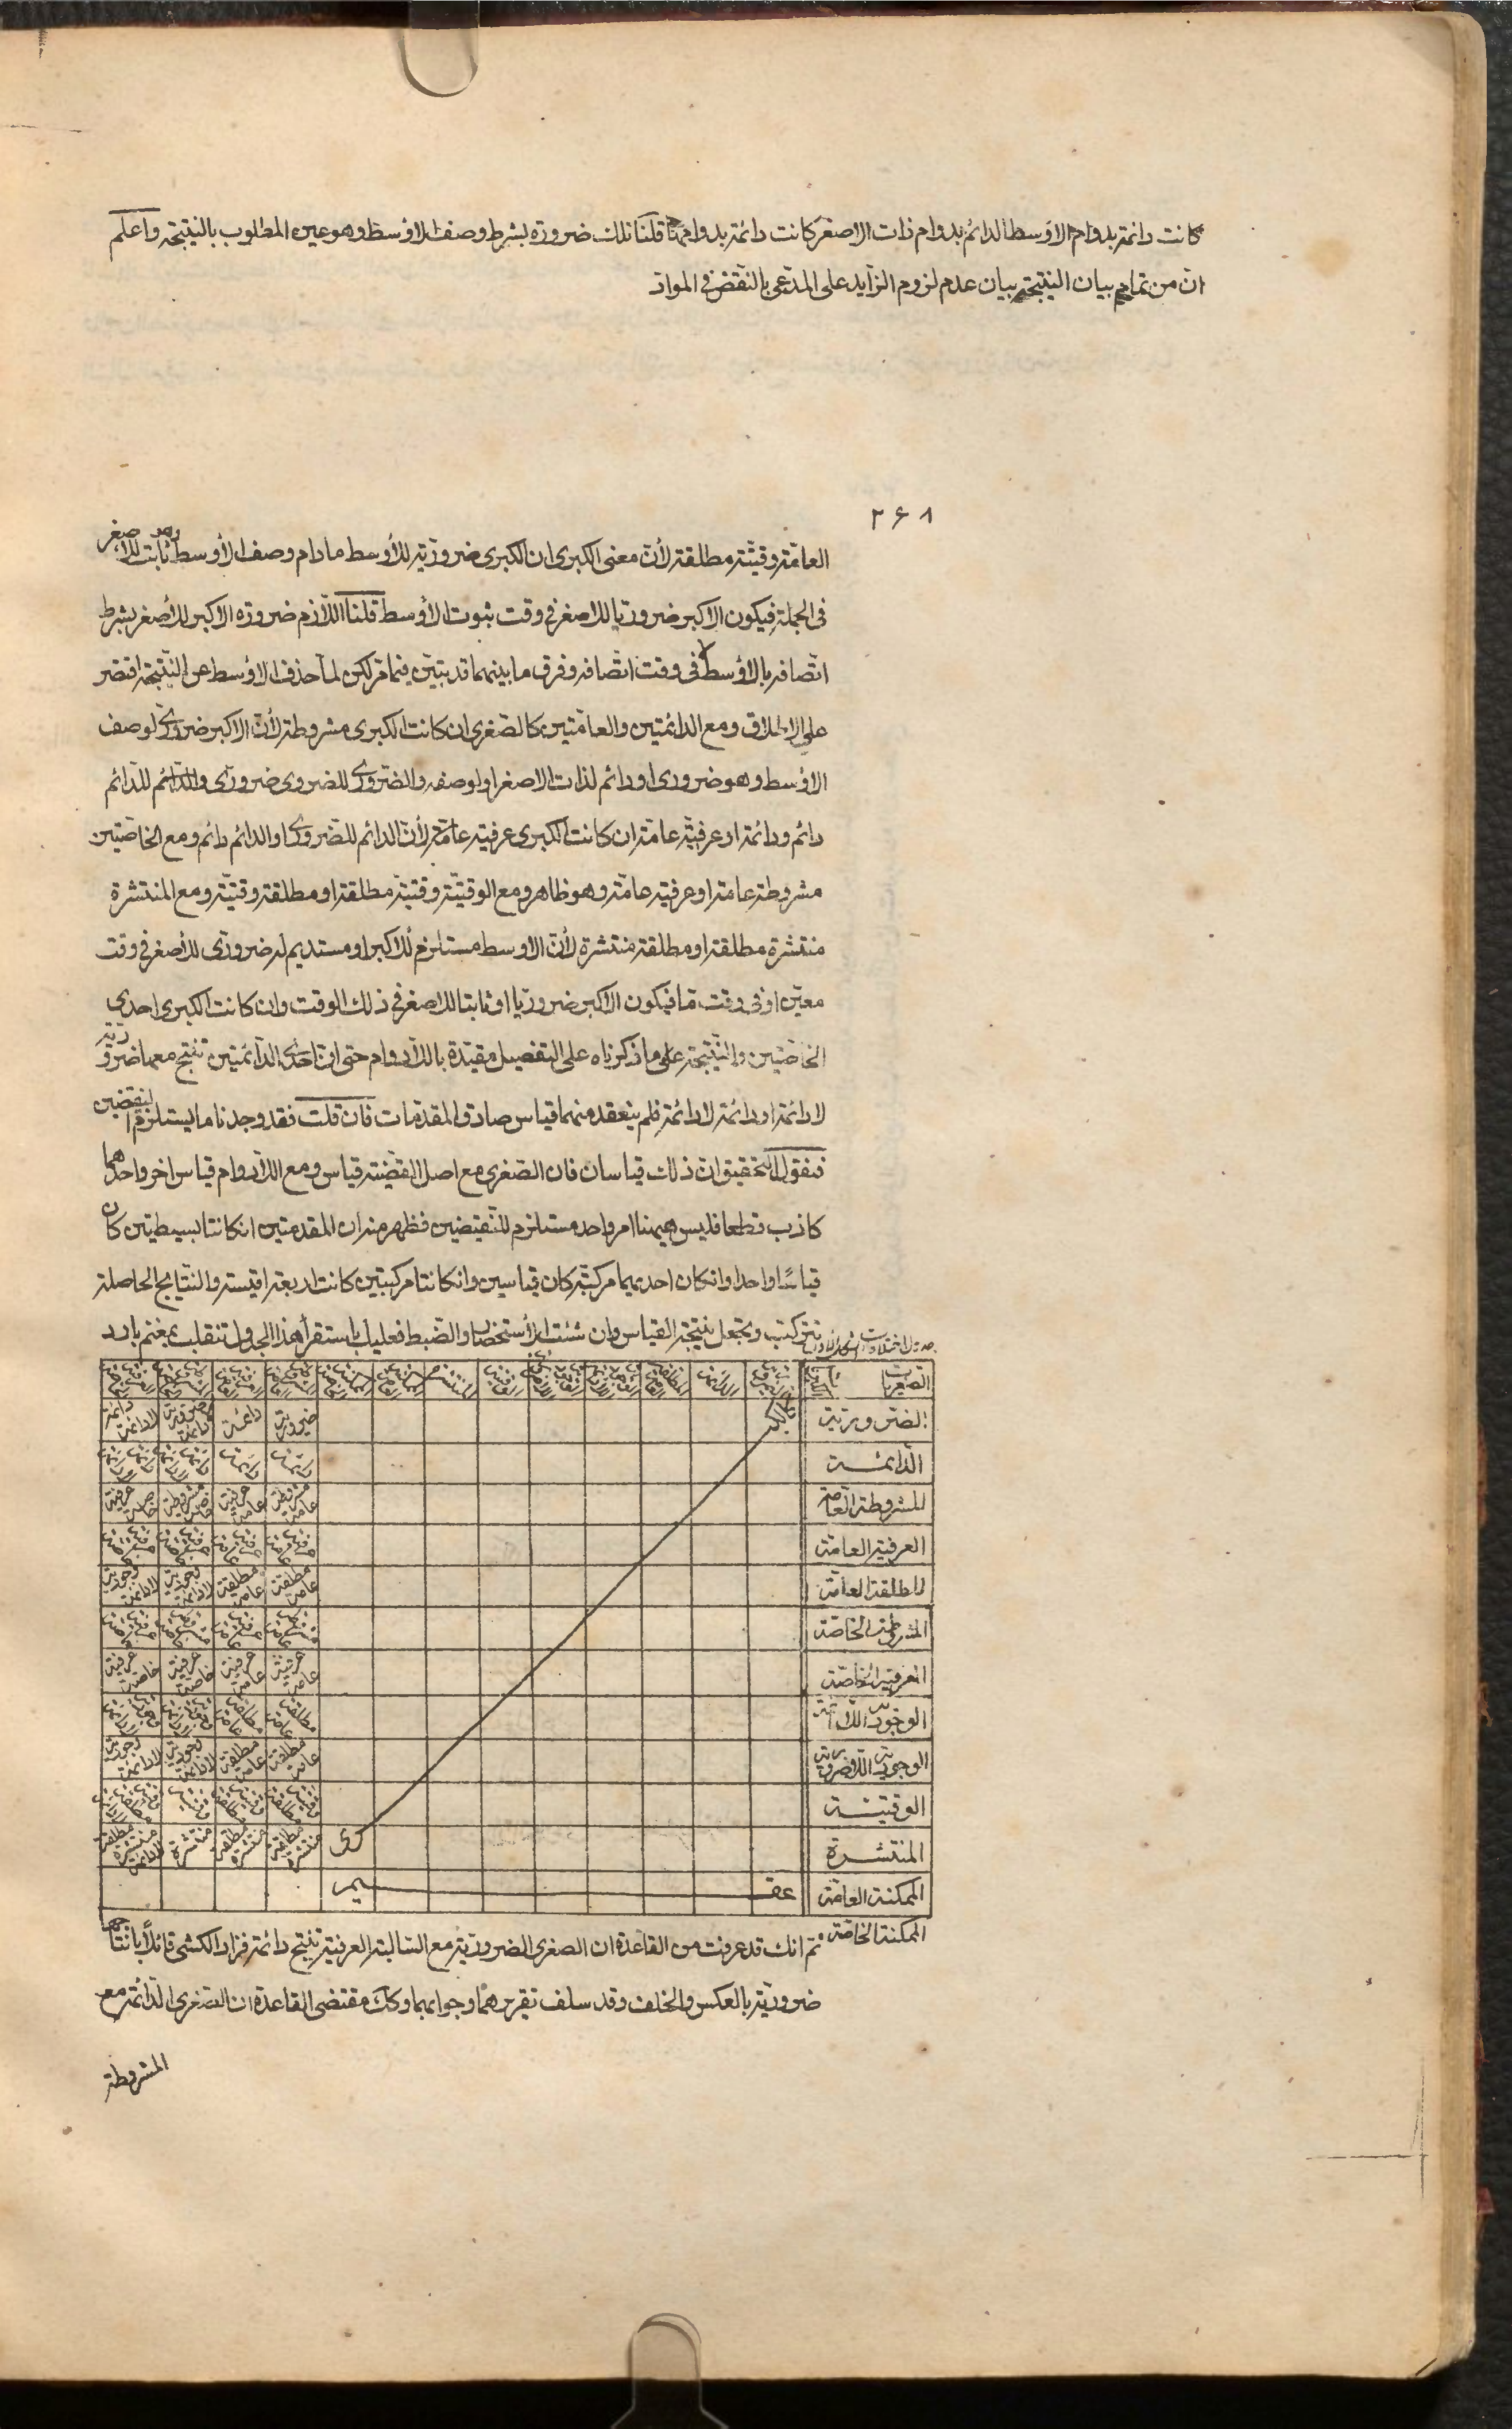 كانت دائمة بدوام الاوسط الدائم بدوام ذات الاصغر كانت دائمة بدوامها قلنا تلك ضرورة بشرط وصف الاوسط وهو عين المطلوب بالنتيجة واعلم
ان من تمام بيان النتيجة بيان عدم لزوم الزايد على المدعى بالنقض فى المواد
٢٦٨
العامّة وقتيّة مطلقة لأنّ معنى الكبرى ان الكبرى ضروريّة للأوسط مادام وصف الأوسط وهو ثابت للاصغر
فى الجملة فيكون الاكبر ضروريا للاصغر فى وقت ثبوت الأوسط قلنا اللّازم ضرورة الاكبر للأصغر بشرط
اتّصافه بالأوسط لا فى وقت اتّصافه وفرق ما بينهما قد تبيّن فيما مرّ لكن لمّا حذف الاوسط عن النّتيجة اقتصر
على الاطلاق ومع الدائمتين والعامّتين كالصّغرى ان كانت الكبرى مشروطة لأنّ الاكبر ضرورىّ لوصف
الاوسط وهو ضرورى او دائم لذات الاصغر او لوصفه والضّرورى للضرورى ضرورى والدّائم للدّائم
دائم ودائمة او عرفيّة عامّة ان كانت الكبرى عرفية عامّة لأنّ الدائم للضّرورى او الدائم دائم ومع الخاصّتين
مشروطة عامة او عرفية عامّة وهو ظاهر ومع الوقتيّة وقتيّة مطلقة او مطلقة وقتيّة ومع المنتشرة
منتشرة مطلقة او مطلقة منتشرة لأنّ الاوسط مستلزم للاكبر او مستديم له ضرورى للأصغر فى وقت
معيّن او فى وقت ما فيكون الاكبر ضروريّا او ثابتا للاصغر فى ذلك الوقت وان كانت الكبرى احدى
الخاصّتين والنّتيجة على ما ذكرناه على التفصيل مقيّدة باللّادوام حتى انّ احدى الدّائمتين تنتج معهما ضروريّة
لا دائمة او دائمة لا دائمة فلم ينعقد منهما قياس صادق المقدّمات فان قلت فقد وجدنا ما يستلزم النقيضين
فنقول التحقيق ان ذلك قياسان فان الصّغرى مع اصل القضيّة قياس ومع اللّادوام قياس اخر واحدهما
كاذب قطعا فليس هيهنا امر واحد مستلزم للنّقيضين فظهر منه ان المقدمتين ان كانتا بسيطتين كان
قياسًا واحدا وان كان احديهما مركبّة كان قياسين وان كانتا مركبتين كانت اربعة اقيسة والنّتايج الحاصلة
تتركّب وتجعل نتيجة القياس وان شئت الأستخصار والضّبط فعليك باستقرأ هذا الجدول تنقلب بمغنم بارد
الصغريات
الضروريّة ضرورية دائمة ضرورية لادائمة دائمة لادائمة
الدّائمة دائمة دائمة دائمة لادائمة دائمة لادائمة
المشروطة العامة مشروطة عامة عرفية عامة مشروطة خاصة عرفية خاصة
العرفية العامة عرفية عامة عرفية عامة عرفية خاصة عرفية خاصة
المطلقة العامّة مطلقة عامة مطلقة عامة وجودية لادائمة وجودية لادائمة
المشروطة الخاصّة مشروطة عامة عرفية عامة مشروطة خاصة عرفية خاصة
العرفية الخاصّة عرفية عامة عرفية عامة عرفية خاصة عرفية خاصة
الوجودية اللادائمة مطلقة عامة مطلقة عامة وجودية لادائمة وجودية لادائمة
الوجودية اللاضرورية مطلقة عامة مطلقة عامة وجودية لادائمة وجودية لادائمة
الوقتيّة
المنتشرة
الممكنة العامّة عقيم
الممكنة الخاصّة
ثم انك قد عرفت من القاعدة ان الصغرى الضروريّة مع السّالبة العرفية تنتج دائمة فزاد الكشى قائلًا بانتاجها
ضروريّة بالعكس والخلف وقد سلف تقريرهما وجوابهما وكك مقتضى القاعدة ان الصّغرى الدّائمة مع
المشروطة